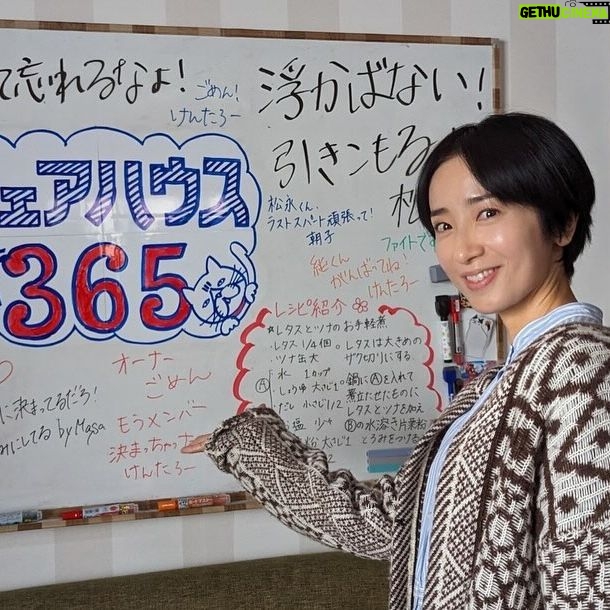 GETHUCINEMA
て忘れるなよ！
ごめん！
けんたろー
浮かばない！
引きこもる
松
ェアハウス
365
松永くん、
ラストスパート頑張って！
朝子
ファイトです
がんばってね！
けんたろー
レシピ紹介
★レタスとツナのお手軽煮
レタス1/4個
ツナ出大
Ⓐ
水 1カップ
しょうゆ 大さじ1
だし 小さじ1/2
塩 少々
粉 大さじ1
2
。レタスは大きめの
ザク切りにする
。鍋にⒶを入れて
煮立たせたものに
レタスとツナを加え
Ⓑの水溶き片栗粉
とろみをつける
に決まってるだろ！
みにしてる by Masa
オーナー
ごめん
もうメンバー
決まっちゃった
けんたろー